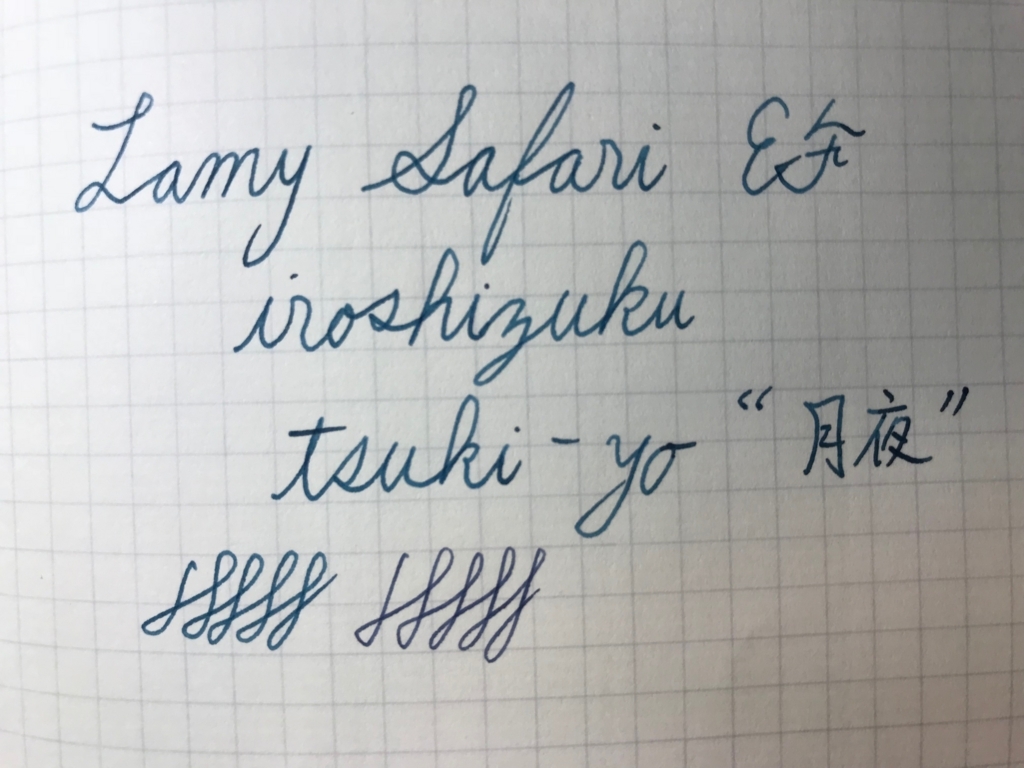 Lamy Safari EF
iroshizuku
tsuki-yo “月夜”